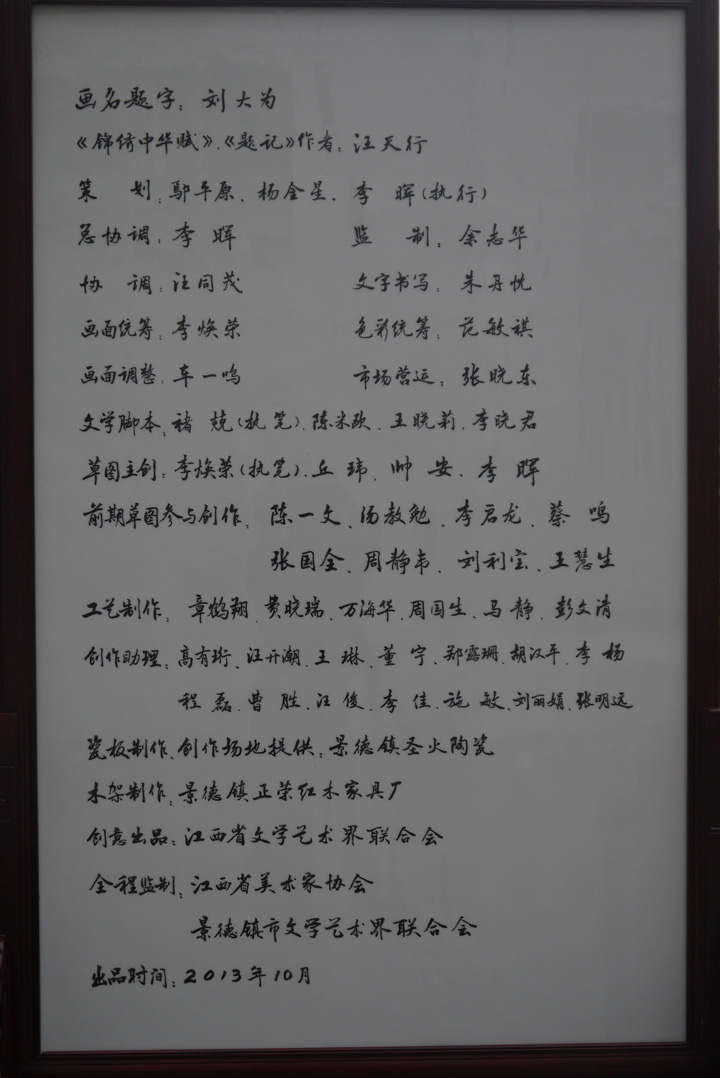 画名题字：刘大为
《锦绣中华赋》、《题记》作者：汪天行
策 划：鄢平原、杨金星、李 晖（执行）
总协调：李 晖 监 制：余志华
协 调：汪同茂 文字书写：朱丹忱
画面统筹：李焕荣 色彩统筹：范敏祺
画面调整：车一鸣 市场营运：张晓东
文学脚本：褚 兢（执笔）、陈米欧、王晓莉、李晓君
草图主创：李焕荣（执笔）、丘 玮、帅 安、李 晖
前期草图参与创作：陈一文、汤敖勉、李启龙、蔡 鸣
张国全、周静韦、刘利宝、王慧生
工艺制作：章鹤翔、费晓瑞、万海华、周国生、马 静、彭文清
创作助理：高有珩、汪开潮、王 琳、董 宁、郑露珊、胡汉平、李 杨
程 磊、曹 胜、汪 俊、李 佳、施 敏、刘丽娟、张明远
瓷板制作、创作场地提供：景德镇圣火陶瓷
木架制作：景德镇正荣红木家具厂
创意出品：江西省文学艺术界联合会
全程监制：江西省美术家协会
景德镇市文学艺术界联合会
出品时间：2013年10月